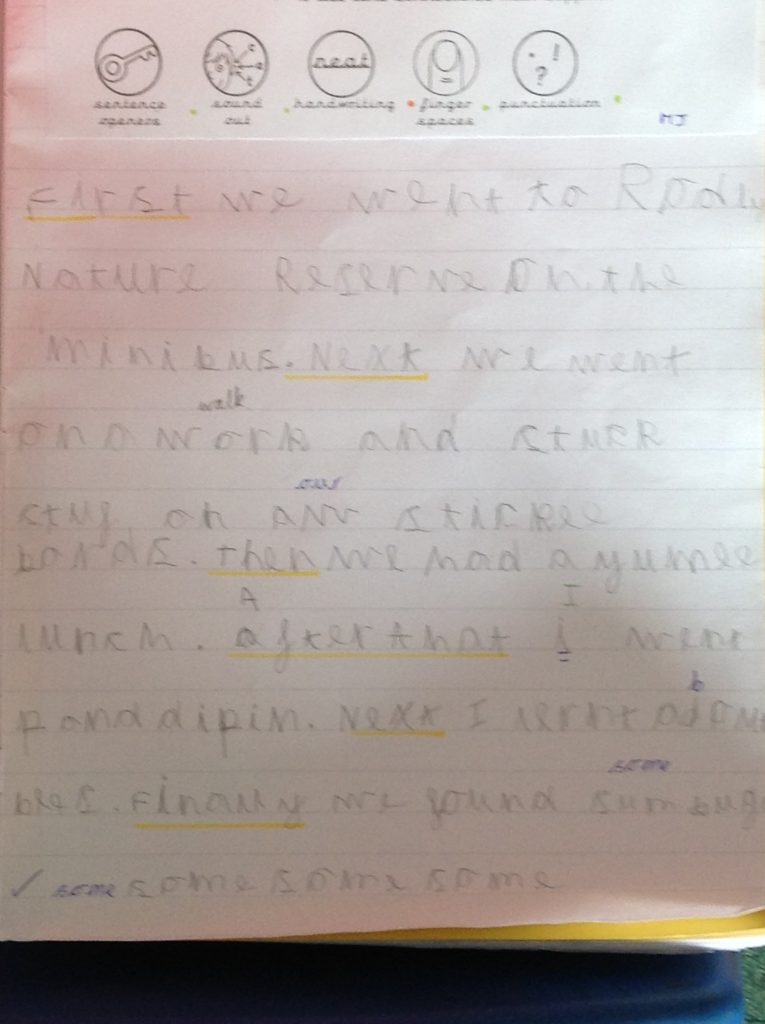 neat
. ! ?
sentence openers sound out handwriting finger spaces punctuation
MJ
First we went to Rodly
Nature Reserve on the
minibus. Next we went
walk
on a work and stuck
our
stuf on aw stickee
bords. then we had a yumee
A I
lunch. after that i went
b
pond dipin. Next I lernt adout
some
bees. Finally we found sum bugs
✓ some some some some